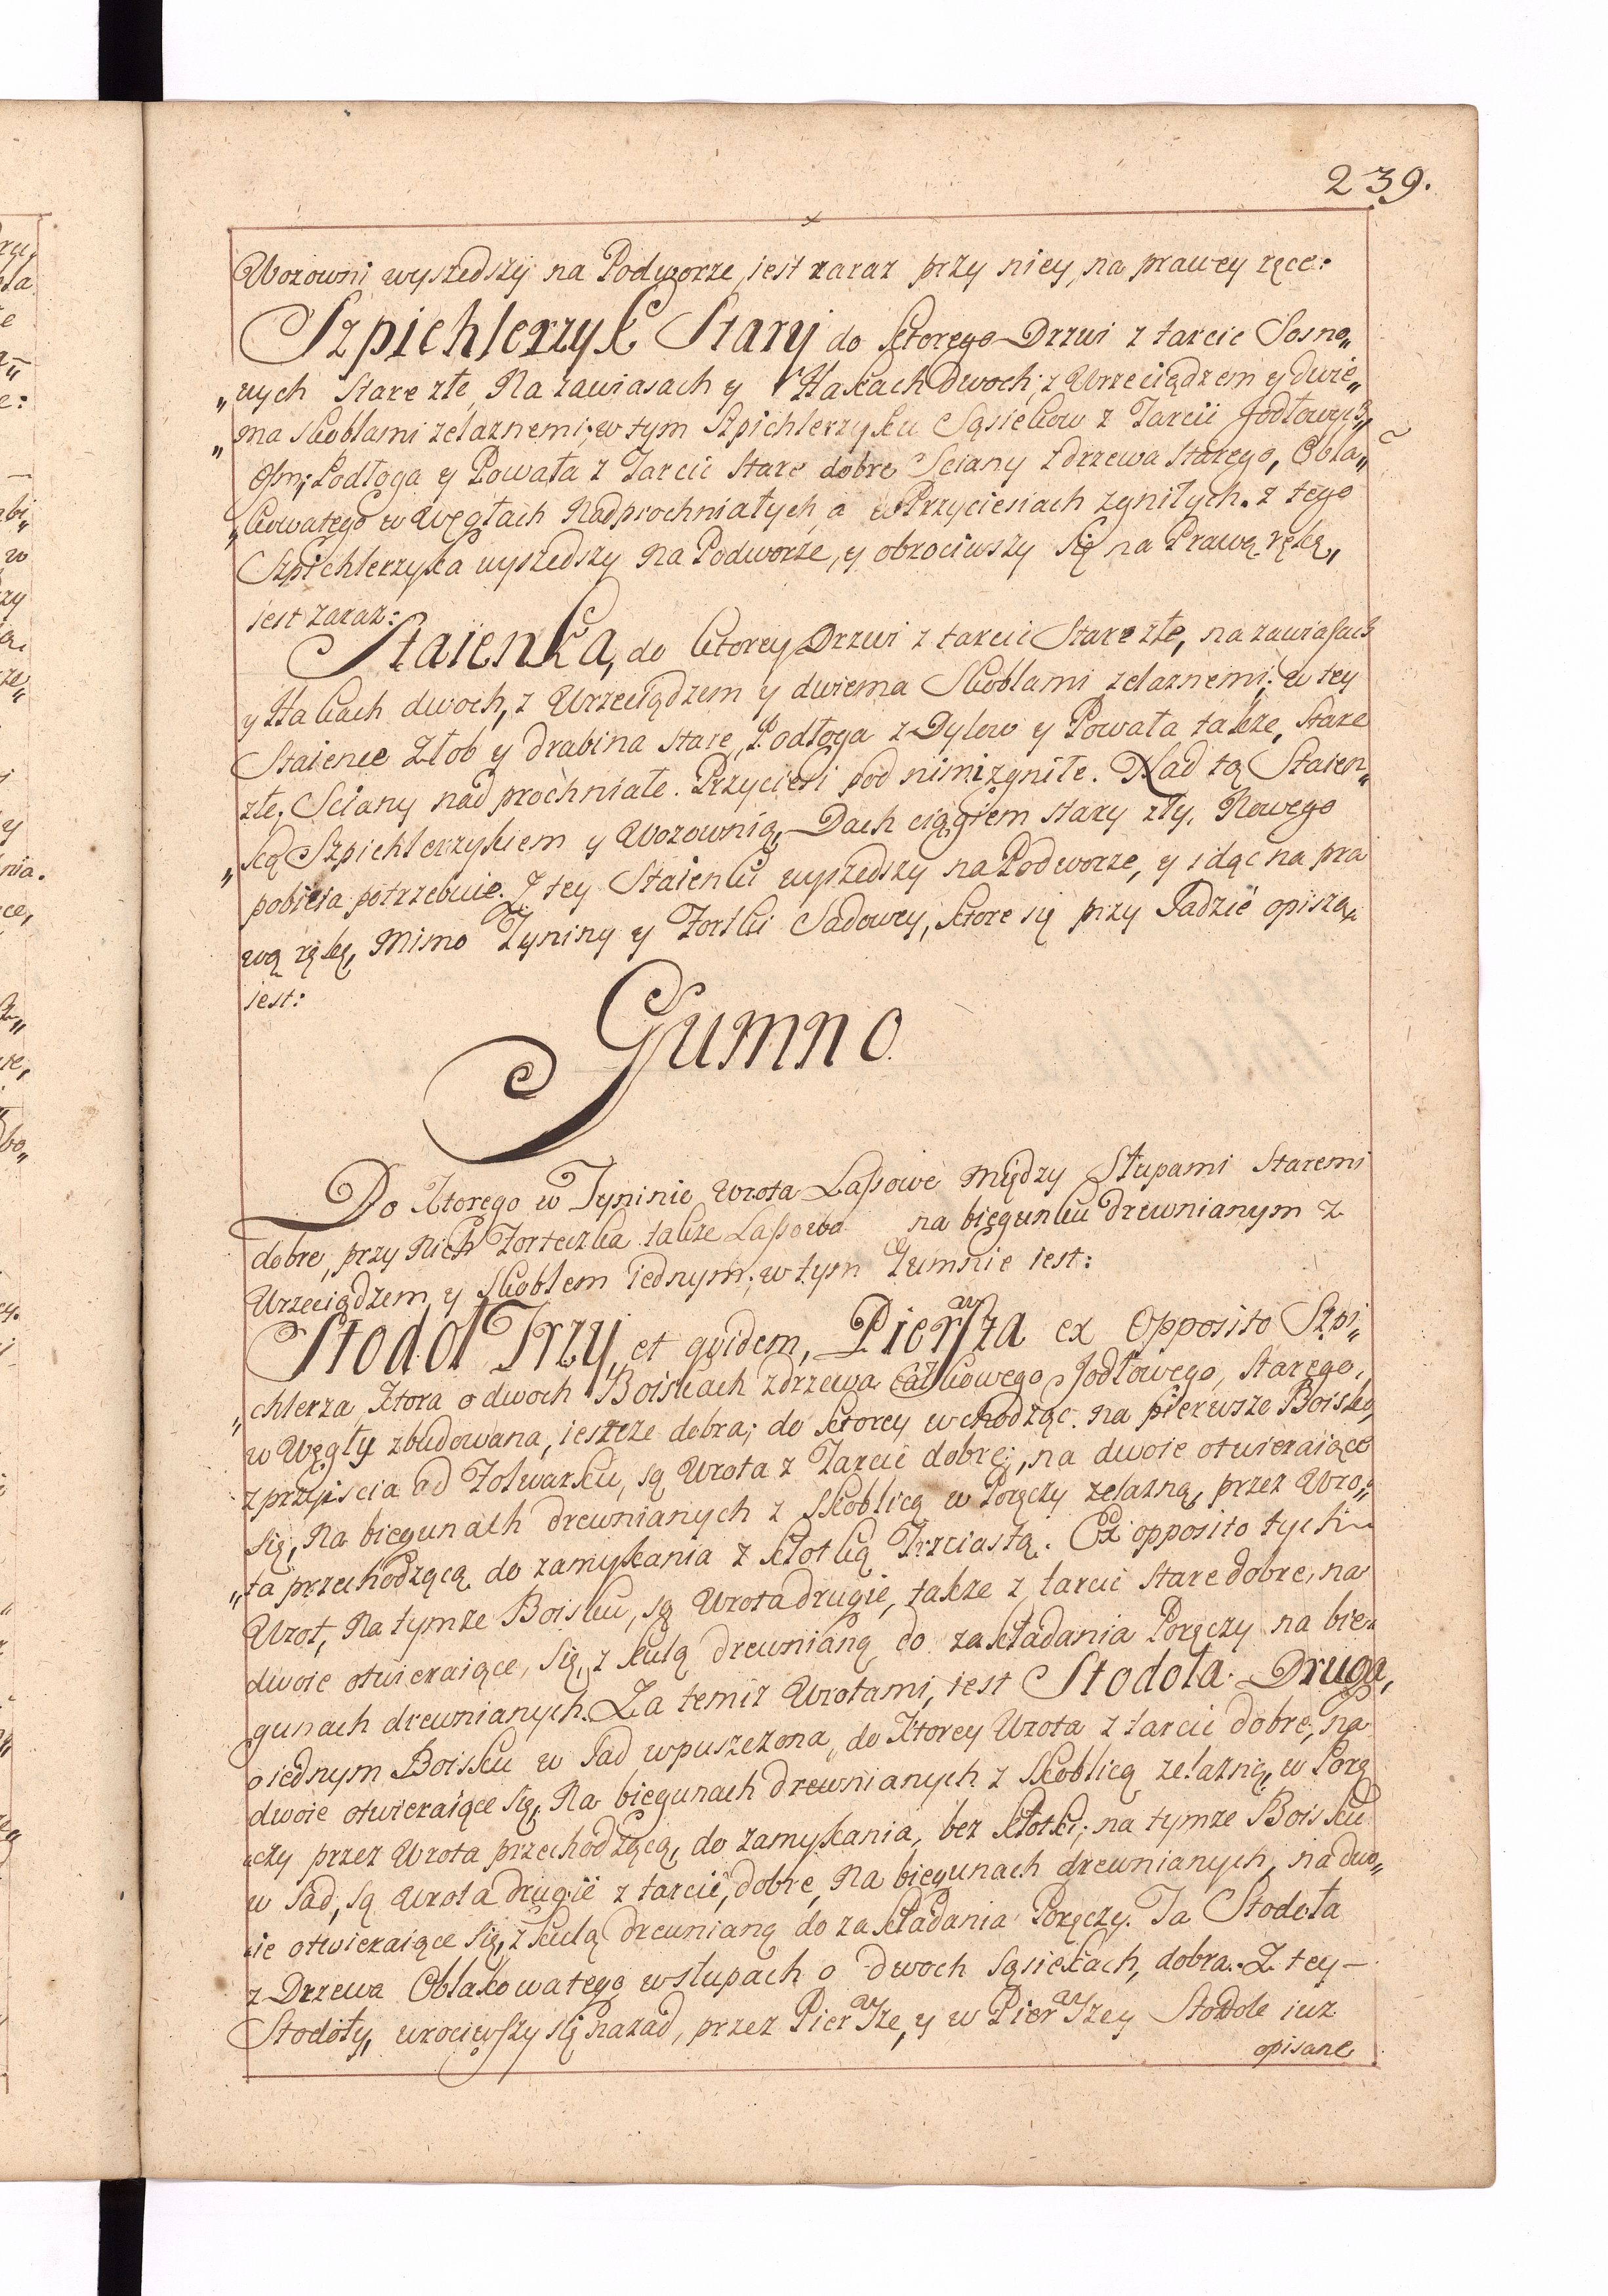 239.
Wozowni wyszedszy na Podworze, iest zaraz przy niey, na prawey ręce:
Szpichlerzyk Stary do ktorego Drzwi z tarcic Sosno„
„wych stare złe, Na zawiasach y Hakach dwoch, z Wrzeciądzem y dwie„
„ma skoblami zelaznemi; w tym Szpichlerzyku Sąsiekow z Tarcic Jodłowych
Osm; Podłoga y Powała z Tarcic stare dobre Sciany z drzewa starego, Obla„
„kowatego w Węgłach Nadprochniałych, a w Przyciesiach zgniłych. z tego
Szpichlerzyka wyszedszy na Podworze, y obrociwszy się na Prawą rękę,
iest zaraz:
Staienka, do ktorey Drzwi z tarcic stare złe, na zawiasach
y Hakach dwoch, z Wrzeciądzem y dwiema Skoblami zelaznemi; w tey
Staience Złob y drabina stare, Podłoga z Dylow y Powała także, stare
złe, Sciany nad prochniałe. Przyciesi pod nimi zgniłe. Nad tą Staien„
„ką Szpichlerzykiem y Wozownią, Dach ciągiem stary zły, Nowego
pobicia potrzebuie. Z tey Staienki wyszedszy na Podworze, y idąc na pra
wą rękę, Mimo Tyniny y Fortki Sadowey, ktore się przy Sadzie opiszą,
iest:
Gumno
Do Ktorego w Tyninie Wrota Lassowe między Słupami staremi
dobre, przy Nich Forteczka także Lassowa na biegunku drewnianym z
Wrzeciądzem y Skoblem iednym; w tym Gumnie iest:
Stodoł Trzy, et quidem, Pierwsza ex Opposito Szpi„
„chlerza, Ktora o dwoch Boiskach z drzewa Całkowego Jodłowego, starego,
w Węgły zbudowana, ieszcze dobra; do ktorey wchodząc na pierwsze Boisko,
z przyiscia od Folwarku, są Wrota z Tarcic dobre, na dwoie otwieraiące
się, Na biegunach drewnianych z Skoblicą w Poręczy zelazną, przez Wro„
„ta przechodzącą do zamykania z kłotką Trzciastą. Ex opposito tych
Wrot, Na tymze Boisku, są Wrota drugie, także z tarcic stare dobre, na
dwoie otwieraiące, się, z kulą drewnianą do zakładania Poręczy na bie„
gunach drewnianych. Za temiz Wrotami, iest Stodoła Druga,
o iednym Boisku w Sad wpuszczona, do Ktorey Wrota z tarcic dobre, na
dwoie otwieraiące się, Na biegunach drewnianych z Skoblicą zelazną, w Porę
„czy przez Wrota przechodzącą, do zamykania, bez kłotki; na tymze Boisku
w Sad, są Wrota drugie z tarcic, dobre, Na biegunach drewnianych, na dwo„
„ie otwieraiące się, z kulą drewnianą do zakładania Poręczy. Ta Stodoła
z Drzewa Oblakowatego w słupach o dwoch sąsiekach, dobra. Z tey
Stodoły, wrociwszy się nazad, przez Pierwsze, y w Pierwszey Stodole iuz
opisane